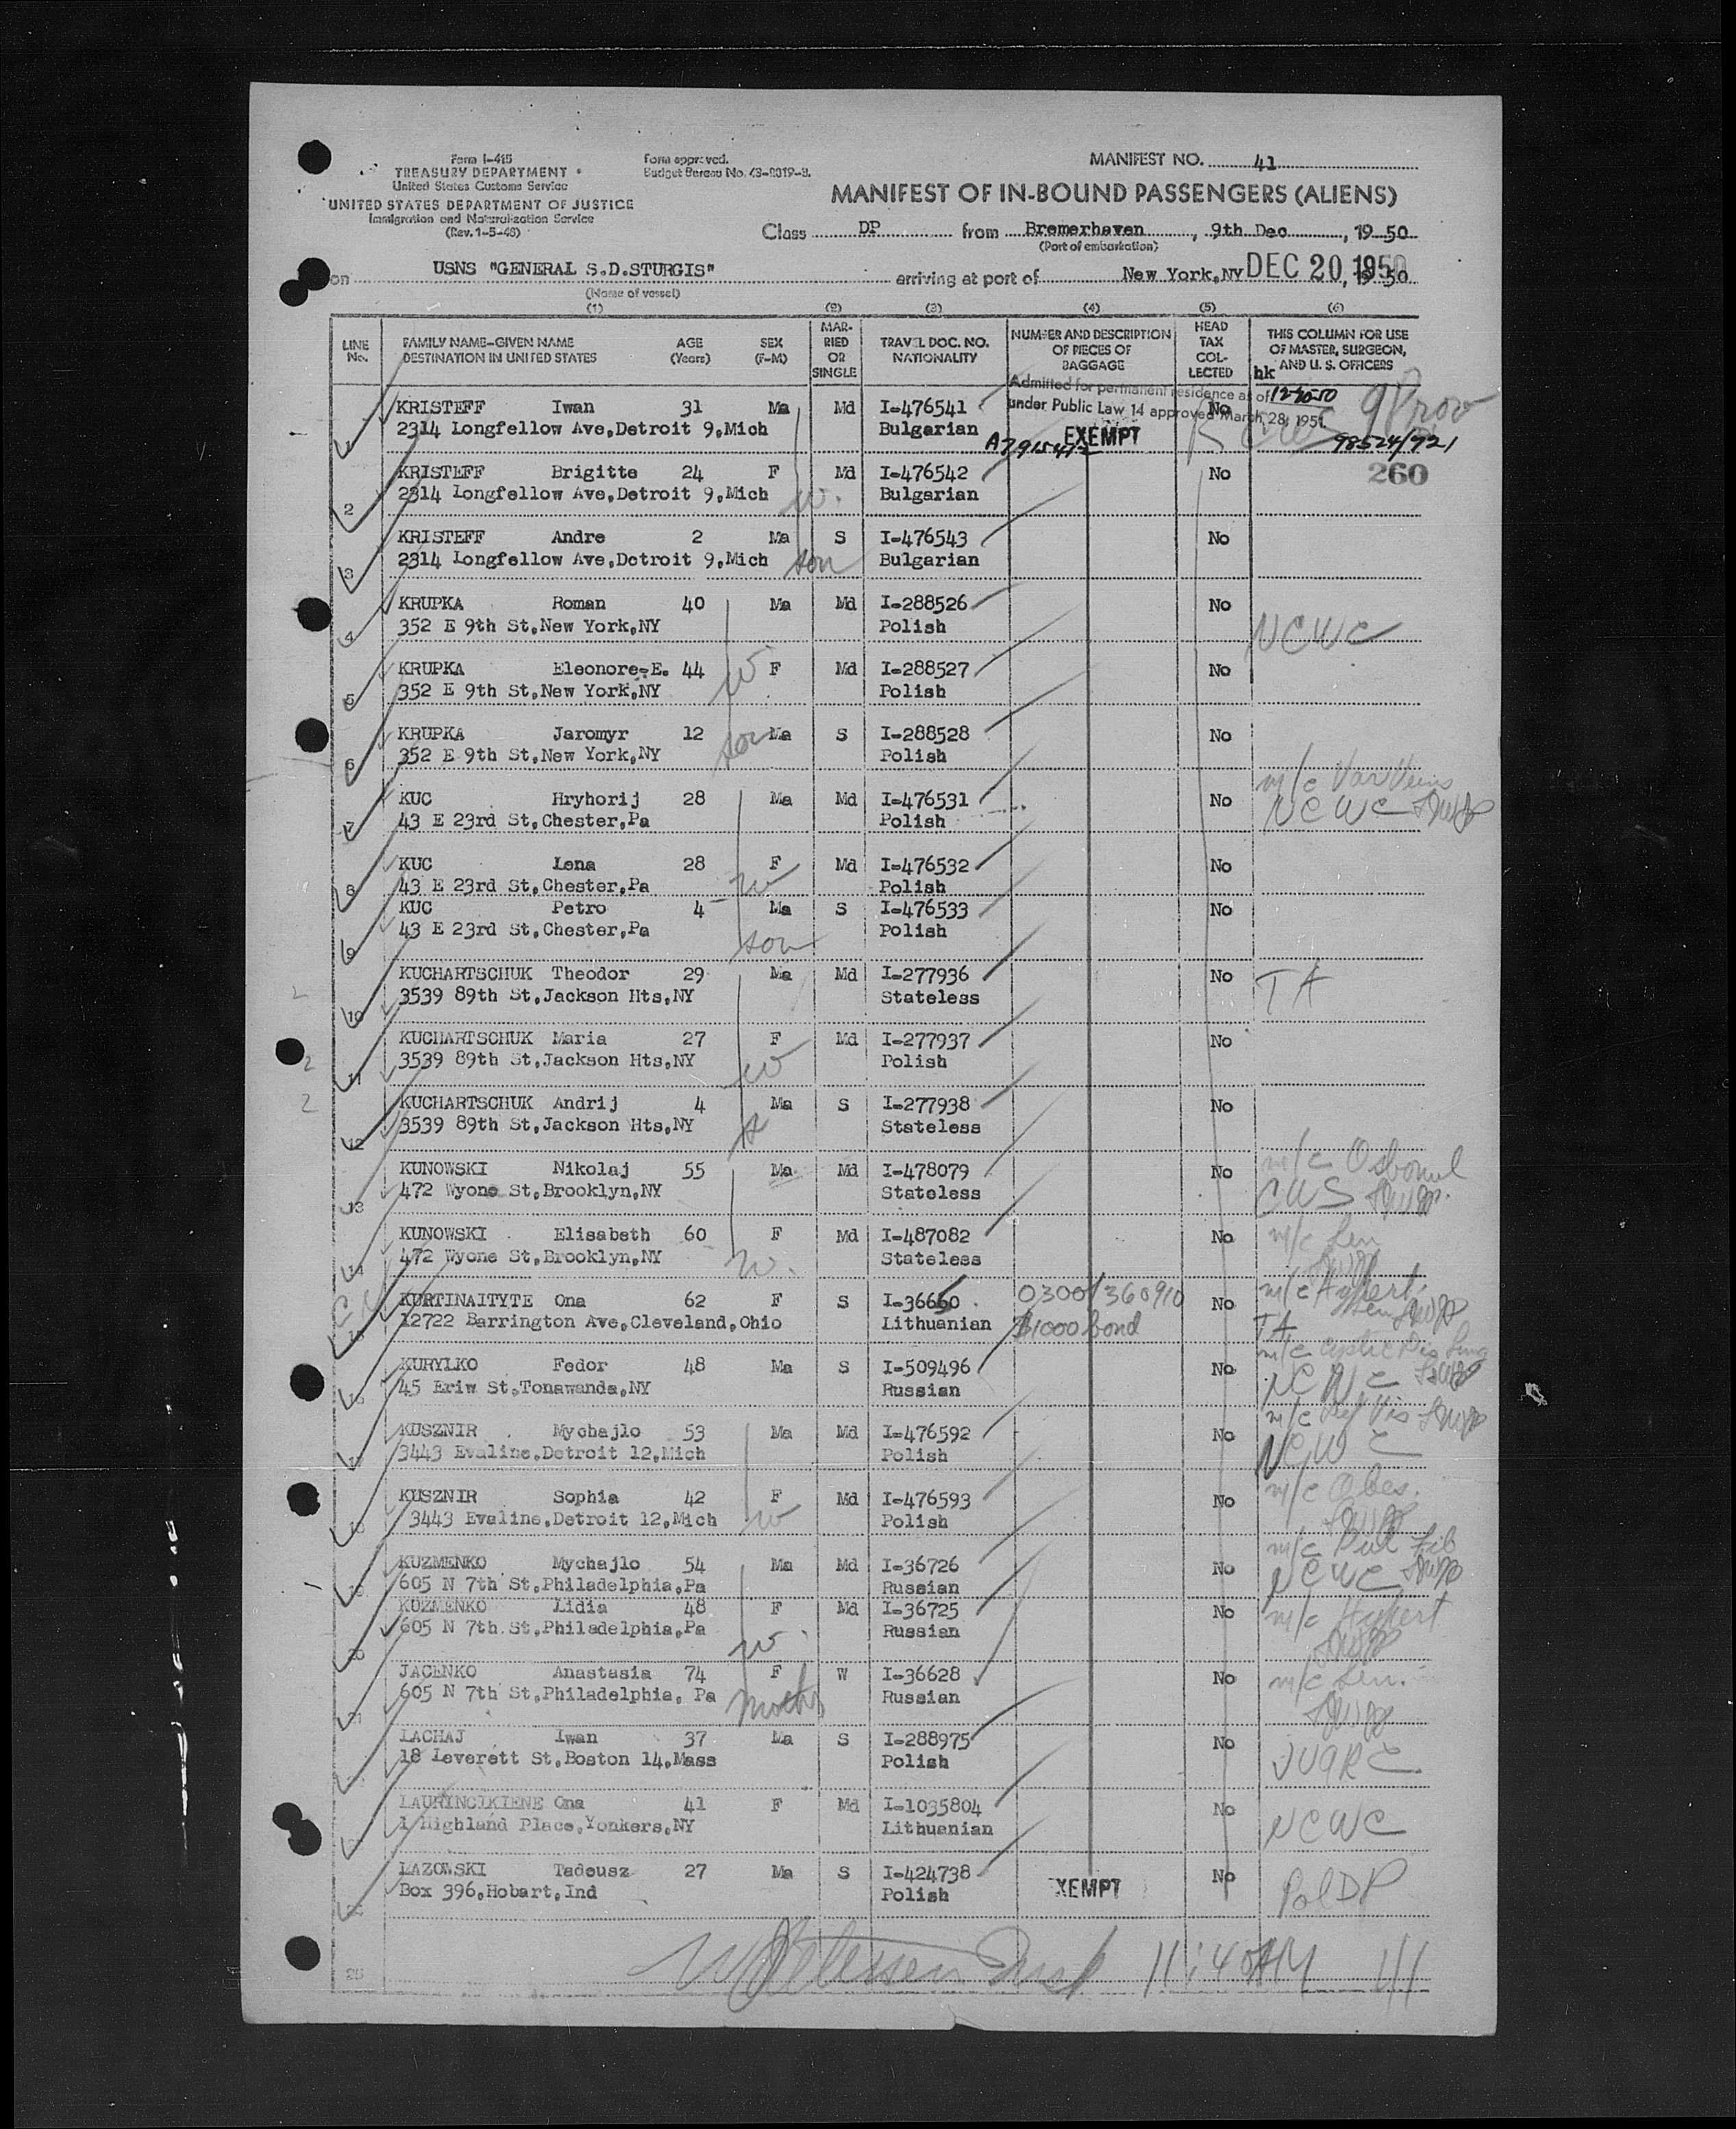 Form I-415
TREASURY DEPARTMENT
United States Customs Service
UNITED STATES DEPARTMENT OF JUSTICE
Immigration and Naturalization Service
(Rev. 1-5-48)
Form approved.
Budget Bureau No. 43-R019-3.
MANIFEST NO. 41
MANIFEST OF IN-BOUND PASSENGERS (ALIENS)
Class DP from Bremerhaven, 9th Dec, 19 50
(Port of embarkation)
on USNS "GENERAL S.D.STURGIS" arriving at port of New York,NY DEC 20, 1950 50
(Name of vessel)
(1) (2) (3) (4) (5) (6)
LINE No. FAMILY NAME-GIVEN NAME DESTINATION IN UNITED STATES AGE (Years) SEX (F-M) MARRIED OR SINGLE TRAVEL DOC. NO. NATIONALITY NUMBER AND DESCRIPTION OF PIECES OF BAGGAGE HEAD TAX COLLECTED THIS COLUMN FOR USE OF MASTER, SURGEON, AND U. S. OFFICERS
hk
Admitted for permanent residence as of 12-20-50
under Public Law 14 approved March 28, 1951.
1 KRISTEFF Iwan 31 Ma Md I-476541 No
2314 Longfellow Ave,Detroit 9,Mich Bulgarian A7915412 EXEMPT CWS 98524/721
2 KRISTEFF Brigitte 24 F Md I-476542 No 260
2314 Longfellow Ave,Detroit 9,Mich w. Bulgarian
3 KRISTEFF Andre 2 Ma S I-476543 No
2314 Longfellow Ave,Detroit 9,Mich son Bulgarian
4 KRUPKA Roman 40 Ma Md I-288526 No
352 E 9th St,New York,NY Polish NCWC
5 KRUPKA Eleonore-E. 44 w F Md I-288527 No
352 E 9th St,New York,NY Polish
6 KRUPKA Jaromyr 12 son Ma S I-288528 No
352 E 9th St,New York,NY Polish
7 KUC Hryhorij 28 Ma Md I-476531 No m/c Var Veins
43 E 23rd St,Chester,Pa Polish NCWC
8 KUC Lena 28 F Md I-476532 No
43 E 23rd St,Chester,Pa w Polish
9 KUC Petro 4 Ma S I-476533 No
43 E 23rd St,Chester,Pa son Polish
10 KUCHARTSCHUK Theodor 29 Ma Md I-277936 No TA
3539 89th St,Jackson Hts,NY Stateless
11 KUCHARTSCHUK Maria 27 F Md I-277937 No
3539 89th St,Jackson Hts,NY w Polish
12 KUCHARTSCHUK Andrij 4 Ma S I-277938 No
3539 89th St,Jackson Hts,NY s Stateless
13 KUNOWSKI Nikolaj 55 Ma Md I-478079 No m/c
472 Wyone St,Brooklyn,NY Stateless CWS
14 KUNOWSKI Elisabeth 60 F Md I-487082 No m/c Sen
472 Wyone St,Brooklyn,NY w. Stateless
KURTINAITYTE Ona 62 F S I-36660 0300/360910 No m/c Hypert.
12722 Barrington Ave,Cleveland,Ohio Lithuanian $1000 bond TA
KURYLKO Fedor 48 Ma S I-509496 No m/c Cystic Dis Lung
45 Eriw St,Tonawanda,NY Russian NCWC
KUSZNIR Mychajlo 53 Ma Md I-476592 No m/c Def Vis
3443 Evaline,Detroit 12,Mich Polish NCWC
KUSZNIR Sophia 42 F Md I-476593 No m/c Obes.
3443 Evaline,Detroit 12,Mich w Polish
KUZMENKO Mychajlo 54 Ma Md I-36726 No m/c Pul Fib
605 N 7th St,Philadelphia,Pa Russian NCWC
20 KUZMENKO Lidia 48 F Md I-36725 No m/c Hypert
605 N 7th St,Philadelphia,Pa w. Russian
21 JACENKO Anastasia 74 F W I-36628 No m/c Sen.
605 N 7th St,Philadelphia, Pa mother Russian
LACHAJ Iwan 37 Ma S I-288975 No
18 Leverett St,Boston 14,Mass Polish
LAURINCIKIENE Ona 41 F Md I-1035804 No
1 Highland Place,Yonkers,NY Lithuanian NCWC
LAZOWSKI Tadeusz 27 Ma S I-424738 No
Box 396,Hobart,Ind Polish EXEMPT Pol DP
25 Insp 11:40AM